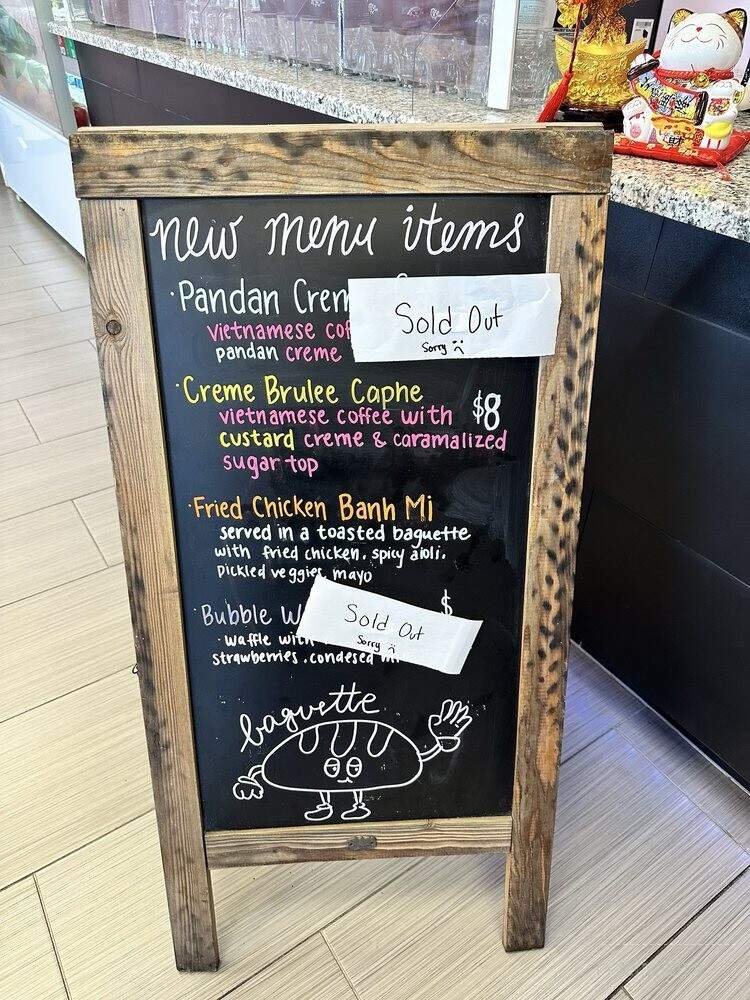 new menu items
·Pandan Crem
Sold Out
Sorry
vietnamese cof
pandan creme
·Creme Brulee Caphe
$8
vietnamese coffee with
custard creme & caramalized
sugar top
·Fried Chicken Banh Mi
served in a toasted baguette
with fried chicken. spicy aioli.
pickled veggies, mayo
·Bubble W
$
Sold Out
Sorry
·waffle with
strawberries.condesed
baguette